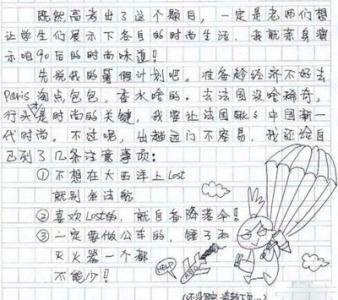 既然高考出了这个题目，一定是老师们想
让学生们展示下各自的时尚生活，我就亲身演
示吧90后的时尚味道！
先说我的暑假计划吧。准备趁经济不好去
Paris淘点包包，香水啥的。去法国没啥稀奇，
行头是时尚的关键，我要让法国 中国新一
代时尚。不过呢，出趟远门不容易，我还给自
己列了几条注意事项：
①不想在大西洋上Lost
就别坐法航
②喜欢Lost的，就自备降落伞！
③一定要做公车的，锤子和
灭火器一个都
不能少！
HELP